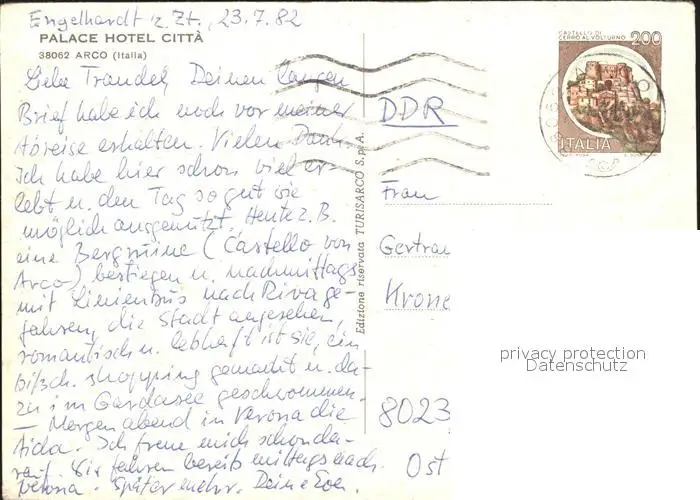 Engelhardt z. Zt., 23.7.82
PALACE HOTEL CITTÀ
38062 ARCO (Italia)
Liebe Traudel, Deinen langen
Brief habe ich noch vor meiner
Abreise erhalten. Vielen Dank.
Ich habe hier schon viel er-
lebt u. den Tag so gut wie
möglich ausgenützt. Heute z. B.
eine Bergruine (Castello von
Arco) bestiegen u. nachmittags
mit Linienbus nach Riva ge-
fahren, die Stadt angesehen,
romantisch u. lebhaft ist sie, ein
bißch. shopping gemacht u. da-
zu im Gardasee geschwommen.
– Morgen abend in Verona die
Aida. Ich freue mich schon da-
rauf. Wir fahren bereits mittags nach
Verona. Später mehr. Deine
Edizione riservata TURISARCO S.p.A.
CASTELLO DI
CERRO AL VOLTURNO
200
ITALIA
DDR
Frau
Gertrau
Krone
8023
Ost
privacy protection
Datenschutz